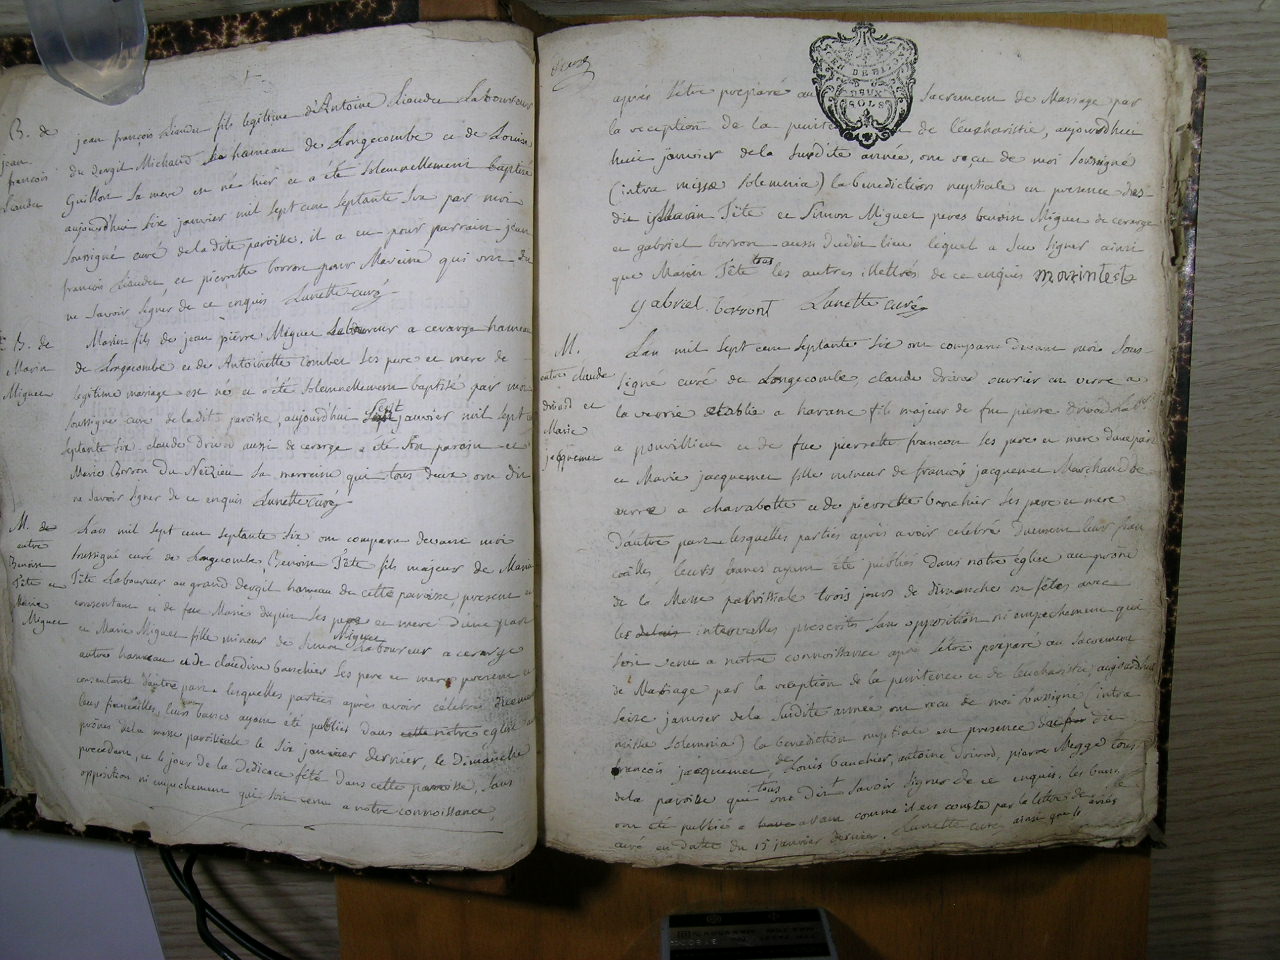 B. de
jean
françois
Liandu
jean françois Liandu fils legitime d'Antoine Liandu Laboureur
du dergil Michaud hameau de Longecombe et de Louise
Guillon sa mere est né hier et a été solemnellement baptisé
aujourdhui six janvier mil sept cent septante six par moi
soussigné curé de la dite paroisse. il a eu pour parrain jean
françois Liandu, et pierrette borron pour Maraine qui ont dit
ne savoir signer de ce enquis Lunette curé
B. de
Marin
Miguet
Marin fils de jean pierre Miguet Laboureur a cerarge hameau
de Longecombe et de Antoinette Combet ses pere et mere de
legitime mariage est né et a été solemnellement baptisé par moi
soussigné curé de la dite paroisse, aujourdhui sept janvier mil sept c
septante six. claude Drivod aussi de cerarge a été son parain et
Marie Borron du Neizieu sa marraine qui tous deux ont dit
ne savoir signer de ce enquis Lunette curé
M. de
entre
Benoit
Tête et
Marie
Miguet
L'an mil sept cent septante six ont comparu devant moi
soussigné curé de Longecombe, Benoit Tête fils majeur de Marin
Tête Laboureur au grand dergil hameau de cette paroisse, present et
consentant et de feue Marie dupuin ses pere et mere d'une part
et Marie Miguet fille mineur de Simon Miguet Laboureur a cerarge
autre hameau et de claudine bauchier ses pere et mere presens et
consentants d'autre part, lesquelles parties après avoir celebré duement
leurs fiançailles, leurs bancs ayant été publiés dans notre église aux
prônes de la messe paroissiale le six janvier dernier, le dimanche
precedent, et le jour de la Dedicace fêté dans cette paroisse, sans
opposition ni empechement qui soit venu a notre connoissance,
après s'être préparé au sacrement de Mariage par
la reception de la penitence et de l'eucharistie, aujourdhui
huit janvier de la susdite année, ont reçu de moi soussigné
(intra missæ solemnia) la benediction nuptiale en presence des
dit Marin Tête et Simon Miguet peres benoit Miguet de cerarge
et gabriel borron aussi dudit lieu lequel a seu signer ainsi
que Marin Tête tous les autres illettrés de ce enquis marintete
gabriel borront Lunette curé
M.
entre claude
drivod et
Marie
jacquemet
L'an mil sept cent septante six ont comparu devant moi sous-
signé curé de Longecombe, claude drivod ouvrier en verre a
la verrie etablie a fils majeur de feu pierre Drivod Lab.r
a pouvillieu et de feue pierrette francon ses pere et mere d'une part
et Marie jacquemet fille mineur de francois jacquemet Marchand de
verre a charabotte et de pierrette bauchier ses pere et mere
d'autre part lesquelles parties après avoir celebré duement leur fian
cailles leurs bancs ayant été publiés dans notre église au prone
de la Messe paroissiale trois jours de dimanches ou fêtes avec
les intervalles prescrits sans opposition ni empechement qui
soit venu a notre connoissance après s'être préparé au sacrement
de Mariage par la reception de la penitence et de l'eucharistie, aujourdhui
seize janvier de la susdite année ont recu de moi soussigné (intra
missæ solemnia) la benediction nuptiale en presence du dit
francois jacquemet, de Louis bauchier, antoine drivod, pierre Megge tous
de la paroisse qui tous ont dit savoir signer de ce enquis. les bans
ont été publiés a comme il est constaté par la lettre de
curé en datte du 15 janvier dernier. Lunette curé ainsi que le